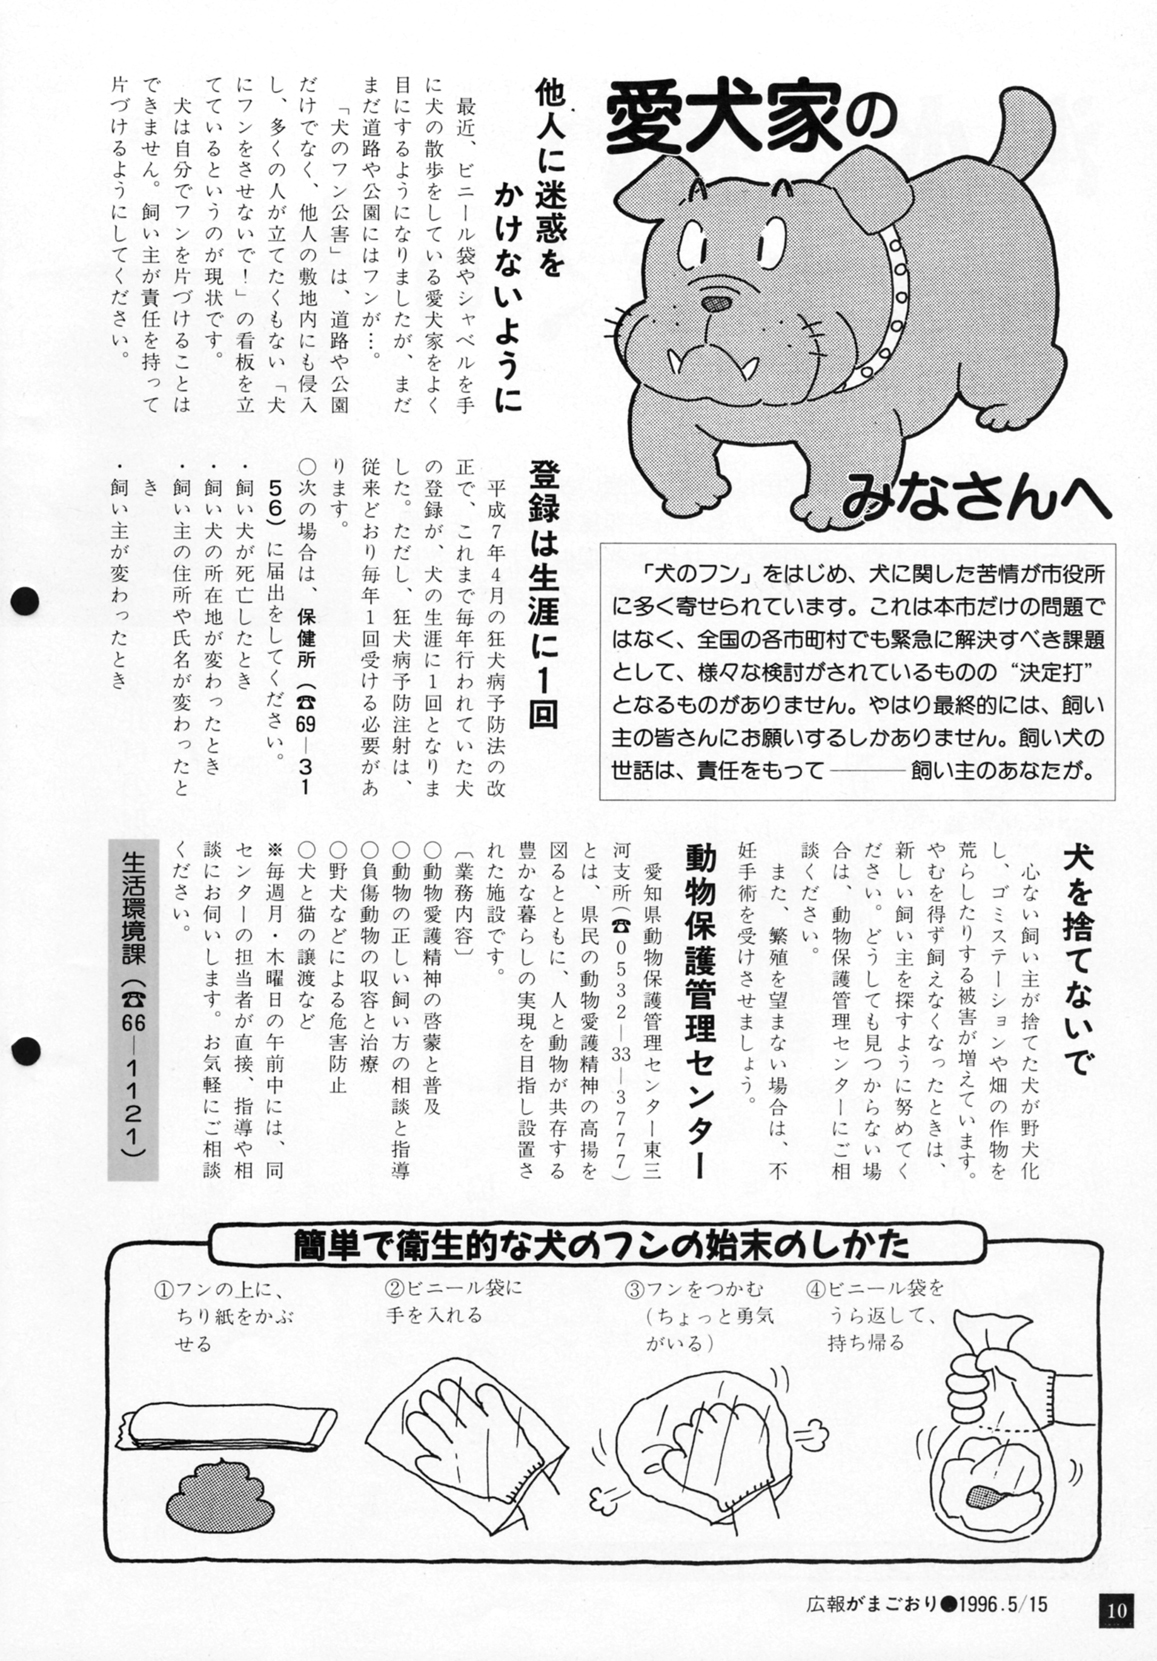 愛犬家の
みなさんへ
「犬のフン」をはじめ、犬に関した苦情が市役所
に多く寄せられています。これは本市だけの問題で
はなく、全国の各市町村でも緊急に解決すべき課題
として、様々な検討がされているものの“決定打”
となるものがありません。やはり最終的には、飼い
主の皆さんにお願いするしかありません。飼い犬の
世話は、責任をもって――飼い主のあなたが。
他人に迷惑を
かけないように
最近、ビニール袋やシャベルを手
に犬の散歩をしている愛犬家をよく
目にするようになりましたが、まだ
まだ道路や公園にはフンが…。
「犬のフン公害」は、道路や公園
だけでなく、他人の敷地内にも侵入
し、多くの人が立てたくもない「犬
にフンをさせないで!」の看板を立
てているというのが現状です。
犬は自分でフンを片づけることは
できません。飼い主が責任を持って
片づけるようにしてください。
登録は生涯に1回
平成7年4月の狂犬病予防法の改
正で、これまで毎年行われていた犬
の登録が、犬の生涯に1回となりま
した。ただし、狂犬病予防注射は、
従来どおり毎年1回受ける必要があ
ります。
○次の場合は、保健所(☎69―31
56)に届出をしてください。
・飼い犬が死亡したとき
・飼い犬の所在地が変わったとき
・飼い主の住所や氏名が変わったと
き
・飼い主が変わったとき
犬を捨てないで
心ない飼い主が捨てた犬が野犬化
し、ゴミステーションや畑の作物を
荒らしたりする被害が増えています。
やむを得ず飼えなくなったときは、
新しい飼い主を探すように努めてく
ださい。どうしても見つからない場
合は、動物保護管理センターにご相
談ください。
また、繁殖を望まない場合は、不
妊手術を受けさせましょう。
動物保護管理センター
愛知県動物保護管理センター東三
河支所(☎0532―33―3777)
とは、県民の動物愛護精神の高揚を
図るとともに、人と動物が共存する
豊かな暮らしの実現を目指し設置さ
れた施設です。
〔業務内容〕
○動物愛護精神の啓蒙と普及
○動物の正しい飼い方の相談と指導
○負傷動物の収容と治療
○野犬などによる危害防止
○犬と猫の譲渡など
※毎週月・木曜日の午前中には、同
センターの担当者が直接、指導や相
談にお伺いします。お気軽にご相談
ください。
生活環境課(☎66―1121)
簡単で衛生的な犬のフンの始末のしかた
①フンの上に、
ちり紙をかぶ
せる
②ビニール袋に
手を入れる
③フンをつかむ
(ちょっと勇気
がいる)
④ビニール袋を
うら返して、
持ち帰る
広報がまごおり●1996.5/15
10